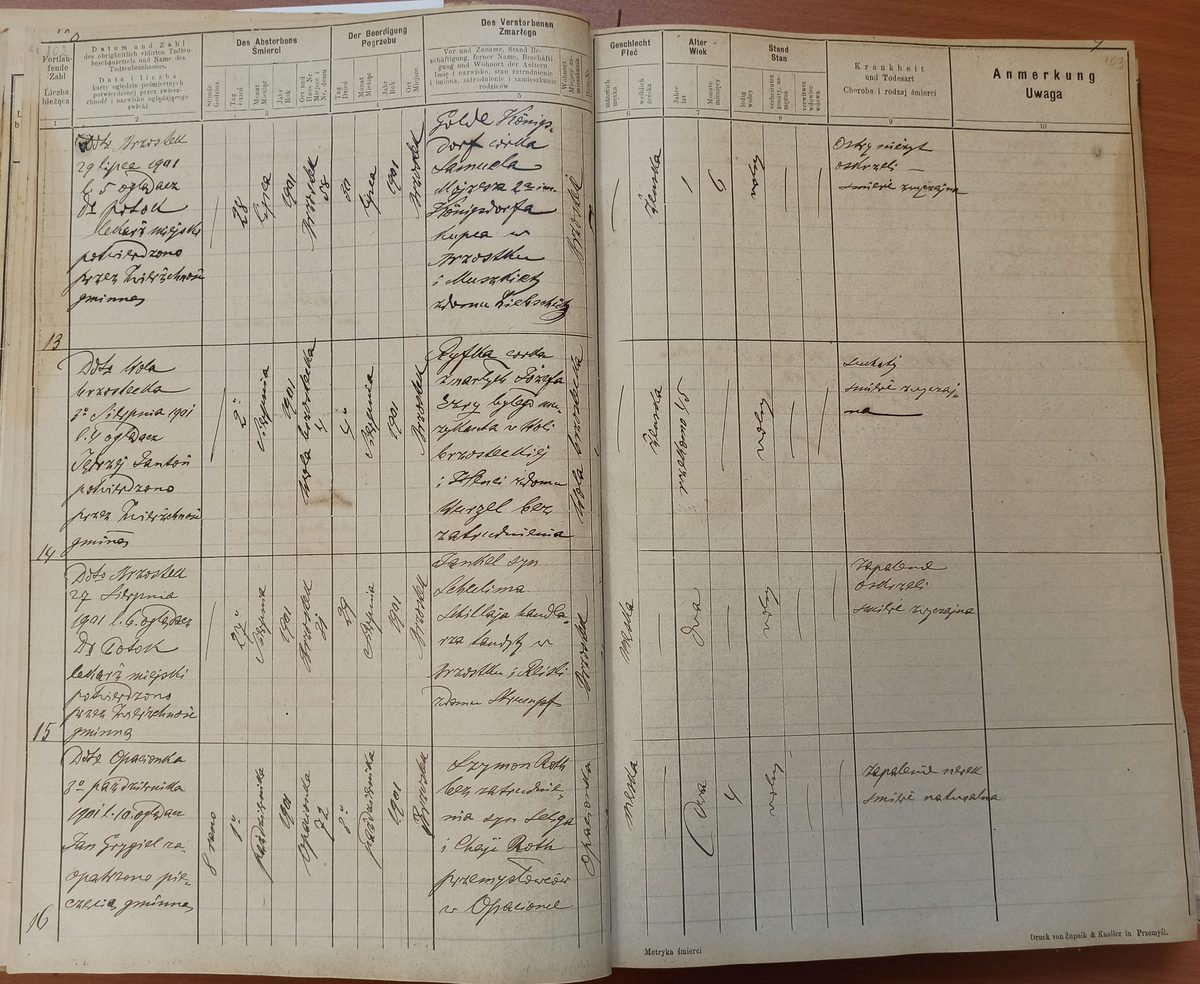 103
Fortlaufende Zahl
Liczba bieżąca
Datum und Zahl
des obrigkeitlich vidirten Todtenbeschauzettels und Name des Todtenbeschauers.
Data i liczba
karty oględzin pośmiertnych potwierdzonej przez zwierzchność i nazwisko oglądającego zwłoki
Des Absterbens
Śmierci
Stunde
Godzina
Tag
dzień
Monat
Miesiąc
Jahr
Rok
Ort und Haus Nr.
Der Beerdigung
Pogrzebu
Tag
Dzień
Monat
Miesiąc
Jahr
Rok
Ort
Miejsce
Des Verstorbenen
Zmarłego
Vor und Zuname, Stand Beschäftigung, ferner Name, Beschäftigung und Wohnort der Aeltern
Imię i nazwisko, stan zatrudnienie i imiona, zatrudnienie i zamieszkanie rodziców
Wohnort
Geschlecht
Płeć
männlich
męzka
weiblich
żeńska
Alter
Wiek
Jahre
lat
Monate
miesięcy
Stand
Stan
ledig
wolny
Krankheit
und Todesart
Choroba i rodzaj śmierci
Anmerkung
Uwaga
1
2
3
5
6
7
8
9
10
13
Brzostek
29 lipca 1901
l. 5 oglądacz
Dr Potok
lekarz miejski
potwierdzono
przez Zwierzchność
gminną
28
lipca
1901
Brzostek
58
30
lipca
1901
Brzostek
Golde Königs-
dorf córka
Samuela
Mojżesza 2ga im.
Königsdorfa
kupca w
Brzostku
i
z domu
Brzostek
żeńska
1
6
wolny
Ostry nieżyt
oskrzeli
śmierć zwyczajna
14
Ddto Wola
brzostecka
3o Sierpnia 1901
l. 4 oglądacz
Jędrzej Zantoń
potwierdzono
przez Zwierzchność
gminną
2o
Sierpnia
1901
Wola brzostecka
4
4o
Sierpnia
1901
Brzostek
Ryfka córka
zmarłych Józefa
byłego
w Woli
brzosteckiej
i z domu
Wurzel bez
zatrudnienia
Wola brzostecka
żeńska
rzekomo 55
wolny
Suchoty
śmierć zwyczaj-
na
15
Ddto Brzostek
27 Sierpnia
1901 l. 6 oglądacz
Dr Potok
lekarz miejski
potwierdzono
przez Zwierzchność
gminną
27o
Sierpnia
1901
Brzostek
31
29
Sierpnia
1901
Brzostek
Jankel syn
Schulima
Schillaja handla-
rza tandety w
Brzostku i
z domu Strumpf
Brzostek
męska
dwa
wolny
zapalenie
oskrzeli
śmierć zwyczajna
16
Ddto Opacionka
3o października
1901 l. 10 oglądacz
Jan Grygiel za-
opatrzono pie-
częcią gminną
8 rano
1o
października
1901
Opacionka
72
3o
października
1901
Brzostek
Szymon Roth
bez zatrudnie-
nia syn Seliga
i Chaje Roth
przemysłowców
w Opacionce
Opacionka
męska
Dwa
4
wolny
zapalenie nerek
śmierć naturalna
Metryka śmierci
Druck von Żupnik & Knoller in Przemyśl.